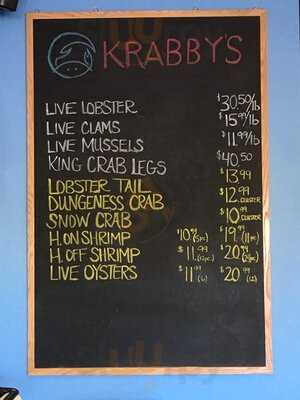 KRABBY'S
LIVE LOBSTER $30.50/lb
LIVE CLAMS $15.99/lb
LIVE MUSSELS $11.99/lb
KING CRAB LEGS $40.50
LOBSTER TAIL $13.99
DUNGENESS CRAB $12.99 CLUSTER
SNOW CRAB $10.99 CLUSTER
H.ON SHRIMP $10.99 $19.99
H.OFF SHRIMP $11.99 (12pc.) $20.99
LIVE OYSTERS $11.99 (6) $20.99 (12)